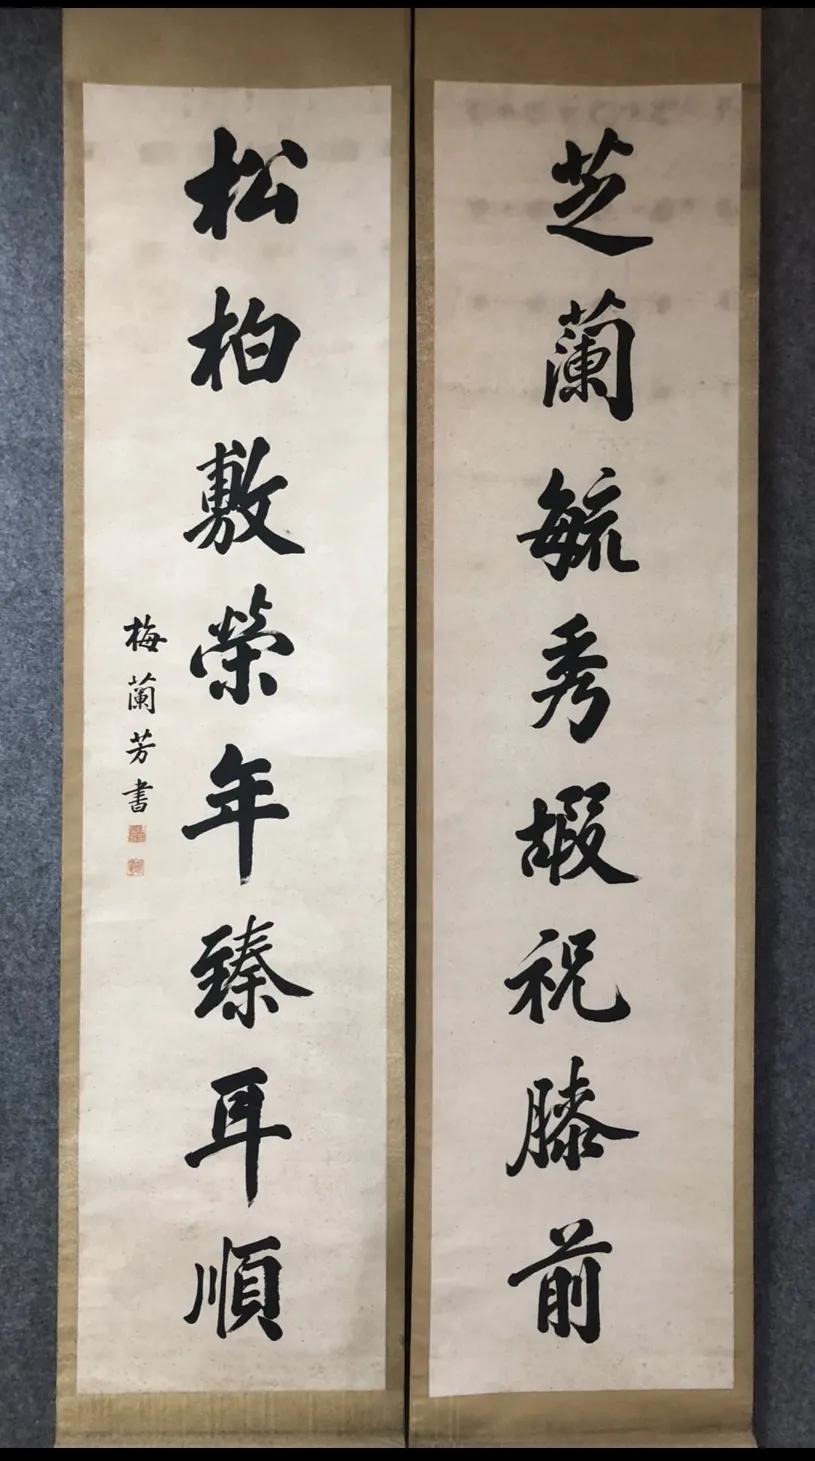 芝蘭毓秀嘏祝膝前
松柏敷榮年臻耳順
梅蘭芳書